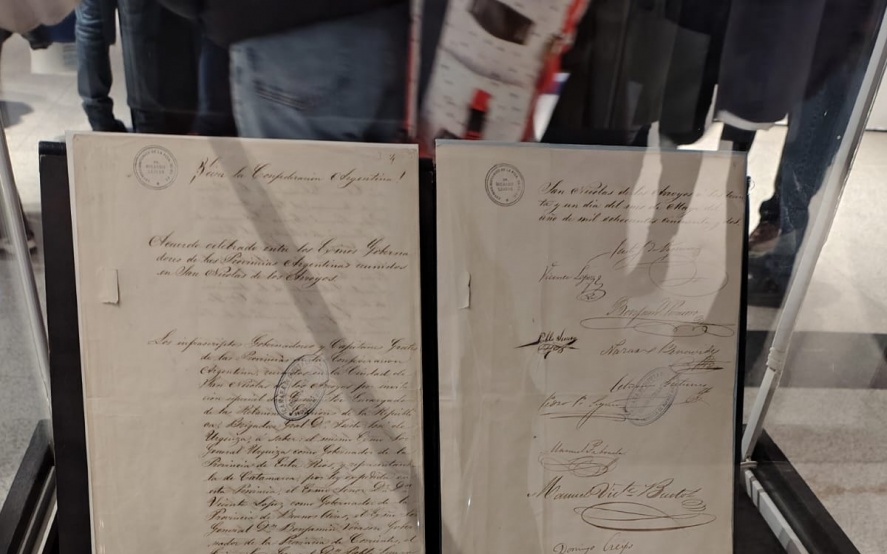 Viva la Confederacion Argentina!
Acuerdo celebrado entre los Exmos Goberna
dores de las Provincias Argentinas reunidos
en San Nicolas de los Arroyos.
Los infrascriptos Gobernadores y Capitanes Grales
de las Provincias de la Confederacion
Argentina, reunidos en la Ciudad de
San Nicolas de los Arroyos por invita
cion especial del Exmo Sor Encargado
de las Relaciones Exteriores de la Repúbli
ca, Brigadier Gral Dn Justo José de
Urquiza, a saber, el mismo Exmo Sor
General Urquiza como Gobernador de la
Provincia de Entre Rios, y representan
la de Catamarca, por ley expedida en
esta Provincia, el Exmo Señor Dr Dn
Vicente Lopez, como Gobernador de la
Provincia de Buenos Aires, el Exmo Sor
General Dn Benjamin Virasoro Gober
nador de la Provincia de Corrientes, el
Dn Pablo
San Nicolas de los Arroyos a los trein
ta y un dia del mes de Mayo
año de mil ochocientos cincuenta y dos
Vicente Lopez
Benjamin Virasoro
Pablo Lucero
Nazario Benavides
Celedonio Gutierrez
Manuel Victe Bustos
Domingo Crespo